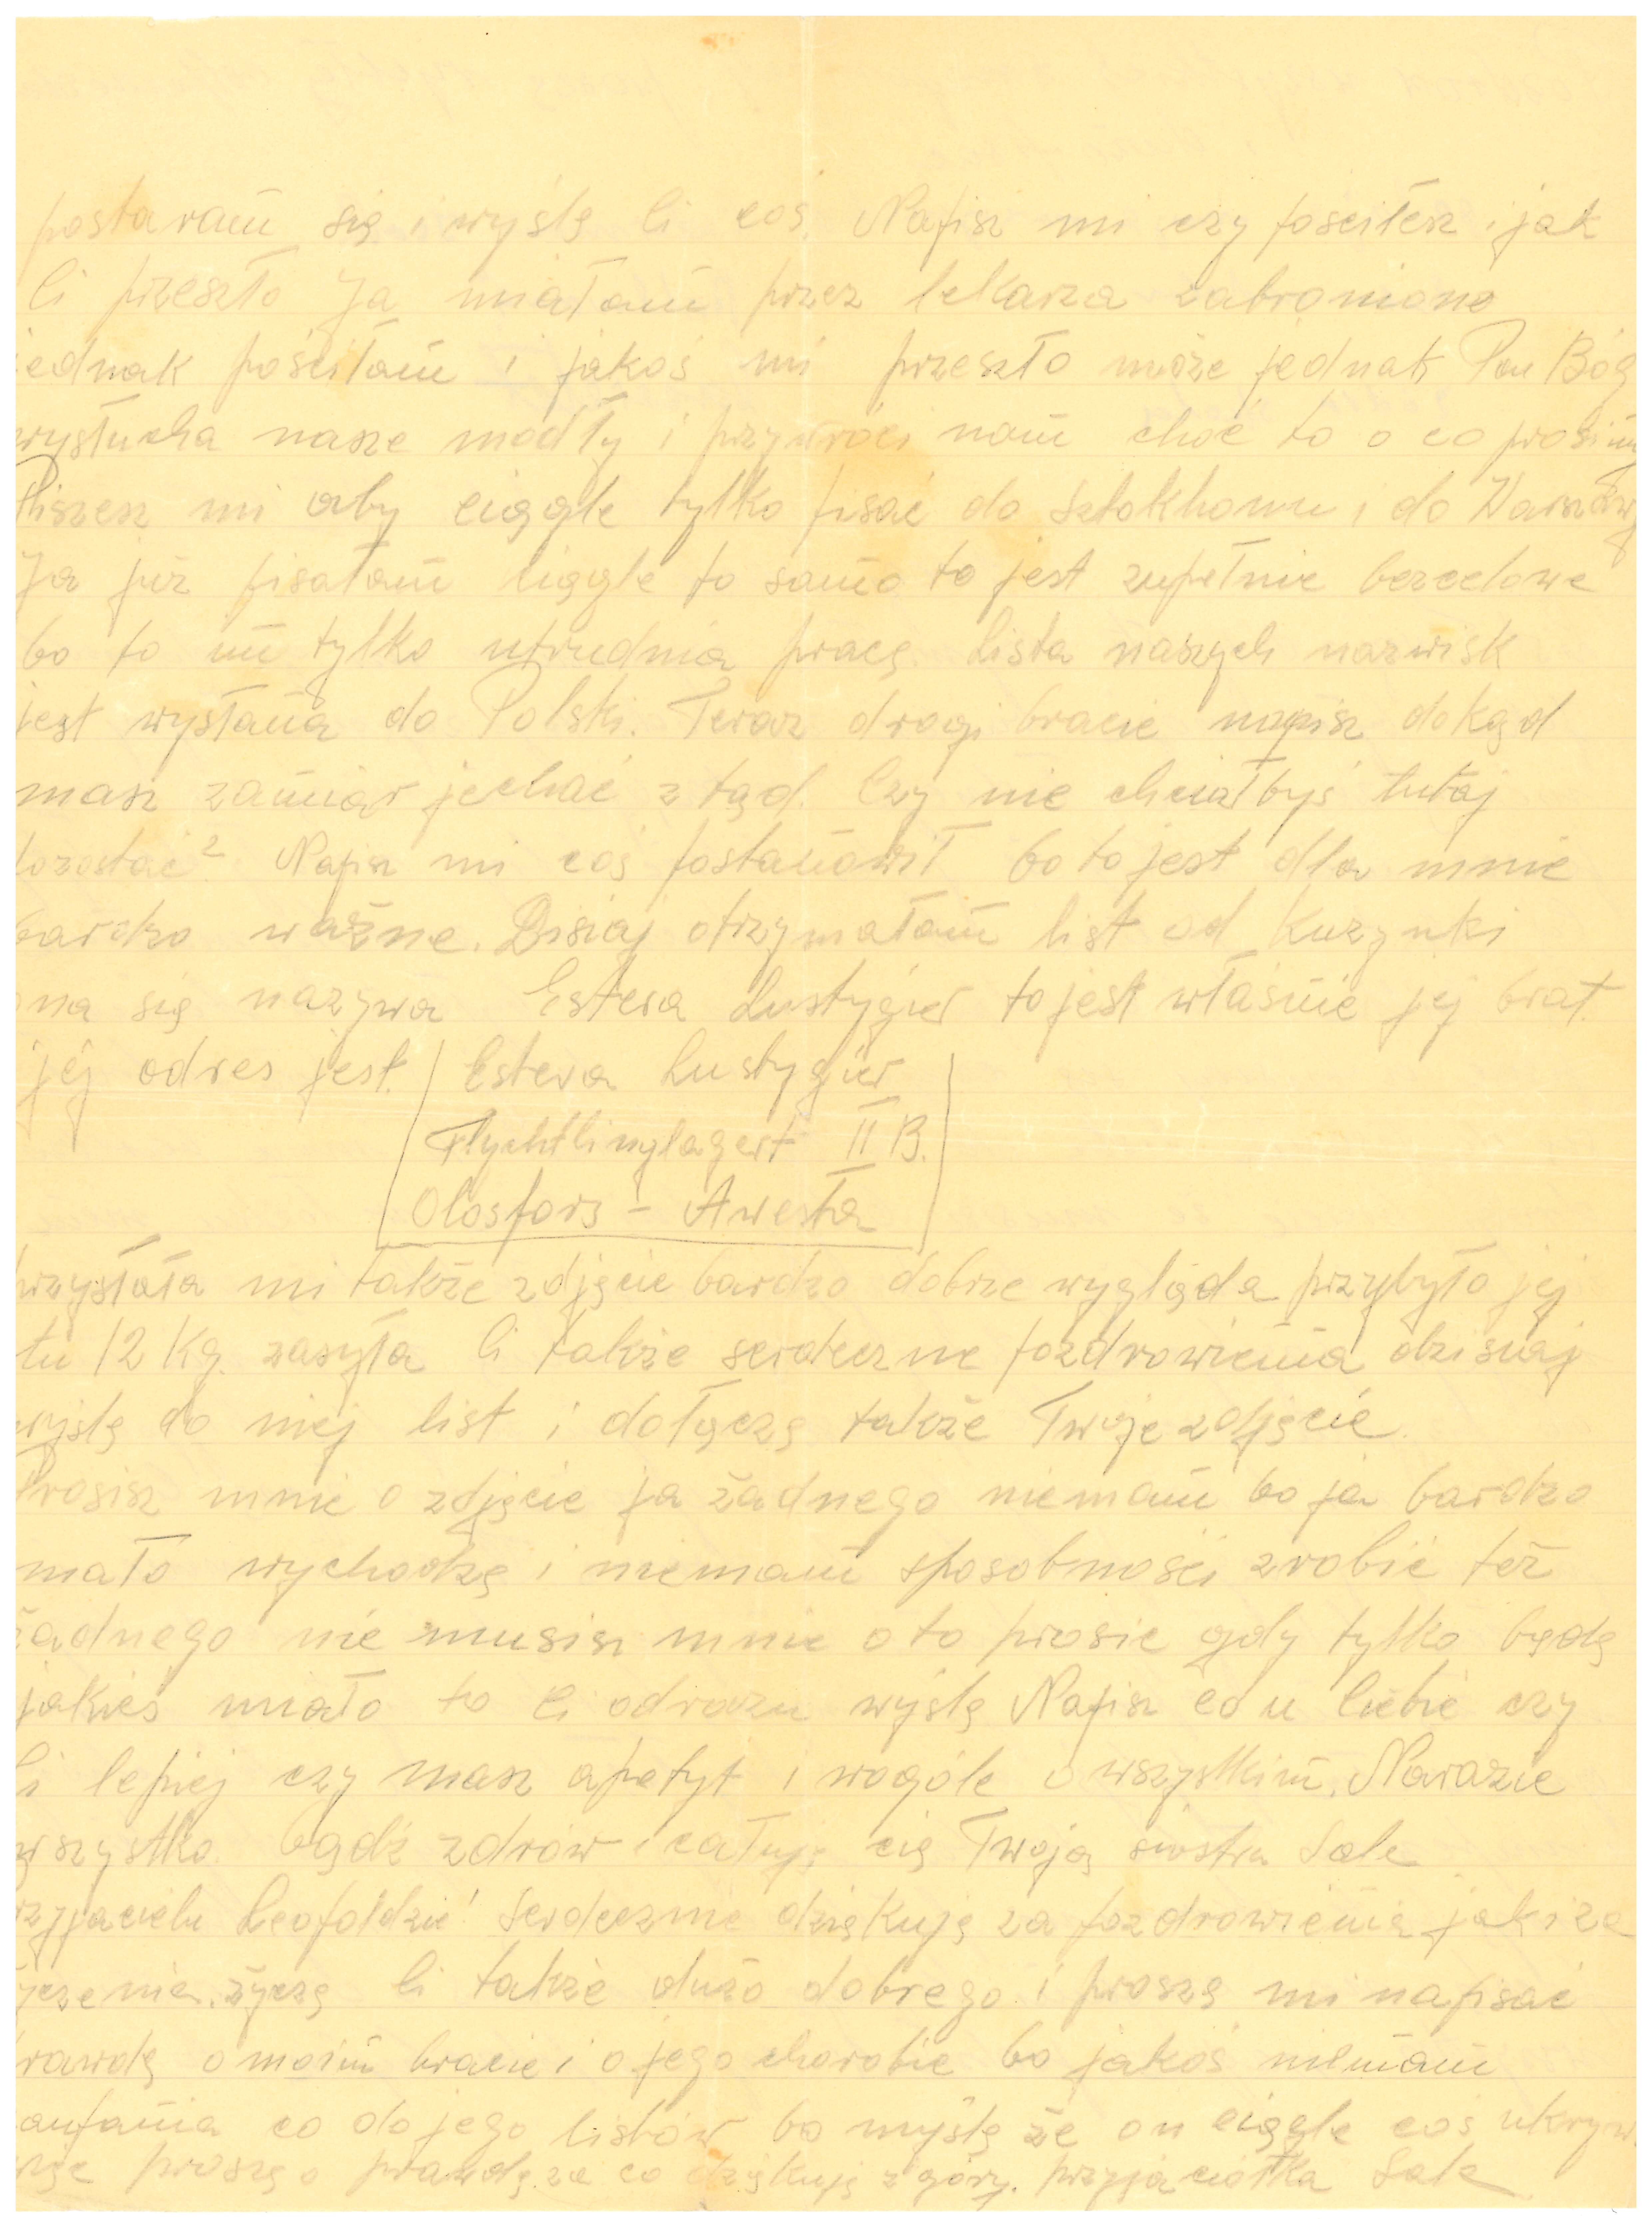 postaram się i wyślę Ci coś. Napisz mi czy pościłesz i jak
Ci przeszło Ja miałam przez lekarza zabronione
jednak pościłam i jakoś mi przeszło może jednak Pan Bóg
wysłucha nasze modły i przywróci nam choć to o co prosimy
Piszesz mi aby ciągle tylko pisać do Sztokhomu i do Warszawy
Ja już pisałam ciągle to samo to jest zupełnie bezcelowe
bo to im tylko utrudnia pracę. Lista naszych nazwisk
jest wysłana do Polski. Teraz drogi bracie napisz dokąd
masz zamiar jechać z tąd. Czy nie chciałbyś tutaj
pozostać? Napisz mi coś postanowił bo to jest dla mnie
bardzo ważne. Disiaj otrzymałam list od Kuzynki
ona się nazywa Estera Lustygier to jest właśnie jej brat.
jej adres jest. Estera Lustygier
Flychtlinglagert II B.
Olosfors – Awesta
przysłała mi także zdjęcie bardzo dobrze wygląda przybyło jej
tu 12 Kg. zasyła Ci także serdeczne pozdrowienia dzisiaj
wyślę do niej list i dołączę także Twoje zdjęcie.
Prosisz mnie o zdjęcie ja żadnego niemam bo ja bardzo
mało wychodzę i niemam sposobności zrobić też
żadnego nie musisz mnie o to prosić gdy tylko będę
jakieś miało to Ci odrazu wyślę Napisz co u Ciebie czy
Ci lepiej czy masz apetyt i wogóle o wszystkim. Narazie
wszystko bądź zdrów i całuję cię Twoja siostra Sale
rzyjacielu Leopoldzie! Serdecznie dziękuję za pozdrowienia jak i za
yczenie. życzę Ci także dużo dobrego i proszę mi napisać
rawdę o moim bracie i o jego chorobie bo jakoś niemam
aufania co do jego listów bo myślę że on ciągle coś ukryw
więc proszę o prawdę za co dziękuję z góry. przyjaciółka Sale